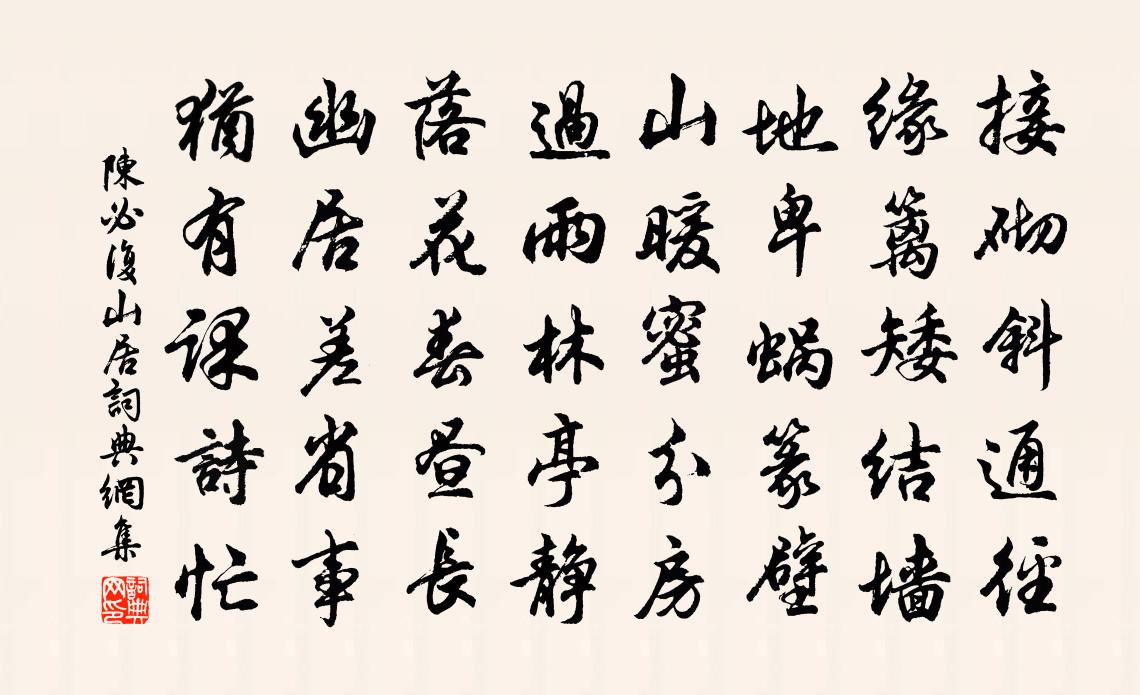 接砌斜通徑
緣篱矮结墙
地卑蜗篆壁
山暖蜜分房
過雨林亭静
落花春昼長
幽居差省事
猶有課詩忙
陳必復山居詞典網集
詞典网印